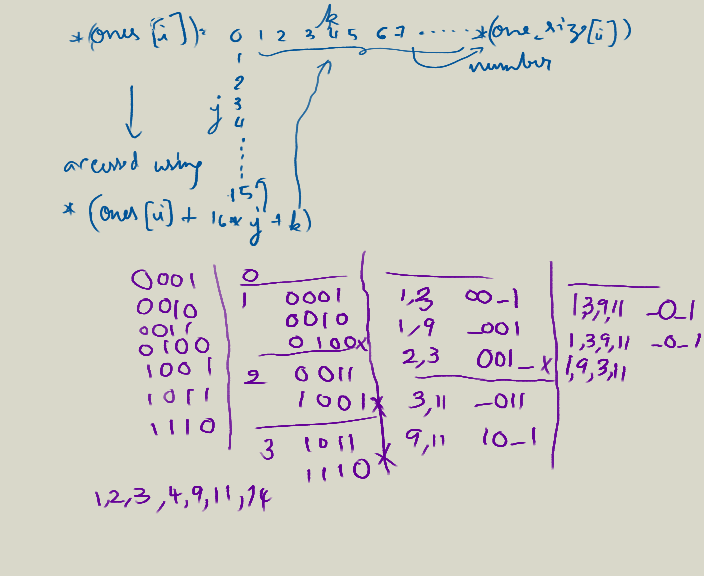 *(ones[i]): 0 1 2 3 4 5 6 7 ........ *(one_size[i])
k
number
1
2
j 3
4
15
accessed using
*(ones[i] + 16* j + k)
0001
0010
0011
0100
1001
1011
1110
0
1 0001
0010
0100x
2 0011
1001x
3 1011
1110x
1,3 00_1
1,9 _001
2,3 001_x
3,11 _011
9,11 10_1
1,3,9,11 _0_1
1,3,9,11 _0_1
1,9,3,11
1,2,3,4,9,11,14